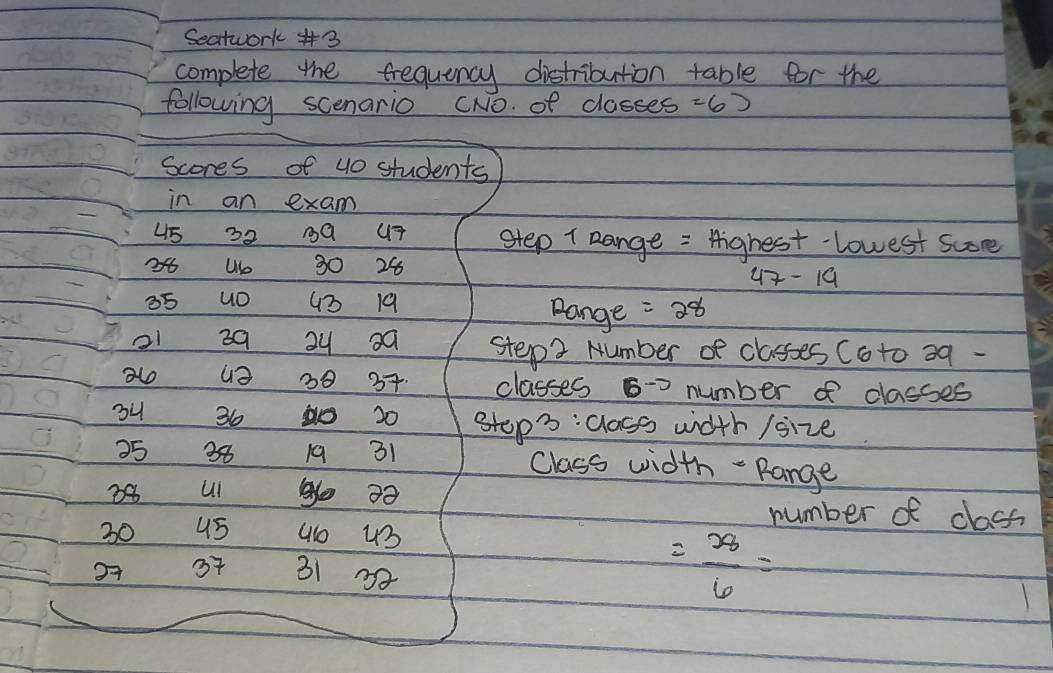 Seatwork #3
complete the frequency distribution table for the
following scenario (No. of classes = 6)
Scores of 40 students
in an exam
45 32 39 47
38 46 30 28
35 40 43 19
21 39 24 29
26 42 38 37
34 36 20
25 38 19 31
38 41 22
30 45 46 43
27 37 31 32
Step 1 Range = Highest - Lowest Score
47 - 19
Range = 28
Step 2 Number of classes (6 to 29 -
classes 6 -> number of classes
Step 3 : Class width / size
Class width = Range
number of class
= 28 =
6